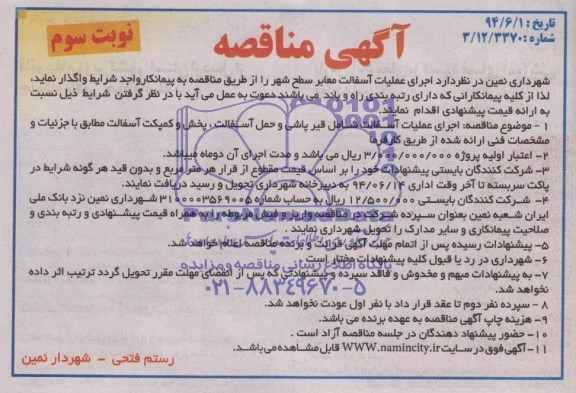 تاریخ: ۹۴/۶/۱
شماره: ۳/۱۲/۳۳۷۰
آگهی مناقصه
نوبت سوم
شهرداری نمین در نظردارد اجرای عملیات آسفالت معابر سطح شهر را از طریق مناقصه به پیمانکارواجد شرایط واگذار نماید،
لذا از کلیه پیمانکارانی که دارای رتبه بندی راه و باند می باشند دعوت به عمل می آید با در نظر گرفتن شرایط ذیل نسبت
به ارائه قیمت پیشنهادی اقدام نمایند.
۱ - موضوع مناقصه: اجرای عملیات آسفالت شامل قیر پاشی و حمل آسفالت ، پخش و کمپکت آسفالت مطابق با جزئیات و
مشخصات فنی ارائه شده از طریق کارفرما
۲- اعتبار اولیه پروژه ۳/۰۰۰/۰۰۰/۰۰۰ ریال می باشد و مدت اجرای آن دوماه میباشد.
۳- شرکت کنندگان بایستی پیشنهادات خود را بر اساس قیمت مقطوع از قرار هر متر مربع و بدون قید هر گونه شرایط در
پاکت سربسته تا آخر وقت اداری ۹۴/۰۶/۱۴ به دبیرخانه شهرداری تحویل و رسید دریافت نمایند.
۴- شرکت کنندگان بایستی ۱۲/۵۰۰/۰۰۰ ریال به حساب شماره ۳۱۰۰۰۰۳۵۶۹۰۰۵ شهرداری نمین نزد بانک ملی
ایران شعبه نمین بعنوان سپرده شرکت در مناقصه واریز و فیش مربوطه را به همراه قیمت پیشنهادی و رتبه بندی و
صلاحیت پیمانکاری و سایر مدارک را تحویل شهرداری نمایند .
۵- پیشنهادات رسیده پس از اتمام مهلت آگهی قرائت و برنده مناقصه اعلام خواهد شد.
۶- شهرداری در رد یا قبول کلیه پیشنهادات مختار است .
۷- به پیشنهادات مبهم و مخدوش و فاقد سپرده و پیشنهادتی که پس از انقضای مهلت مقرر تحویل گردد ترتیب اثر داده
نخواهد شد.
۸ - سپرده نفر دوم تا عقد قرار داد با نفر اول عودت نخواهد شد.
۹- هزینه چاپ آگهی مناقصه به عهده برنده می باشد.
۱۰- حضور پیشنهاد دهندگان در جلسه مناقصه آزاد است .
۱۱- آگهی فوق در سایت WWW.namincity.ir قابل مشاهده می باشد.
رستم فتحی - شهردار نمین
پایگاه اطلاع رسانی مناقصه و مزایده
۰۲۱-۸۸۳۴۹۶۷۰-۵